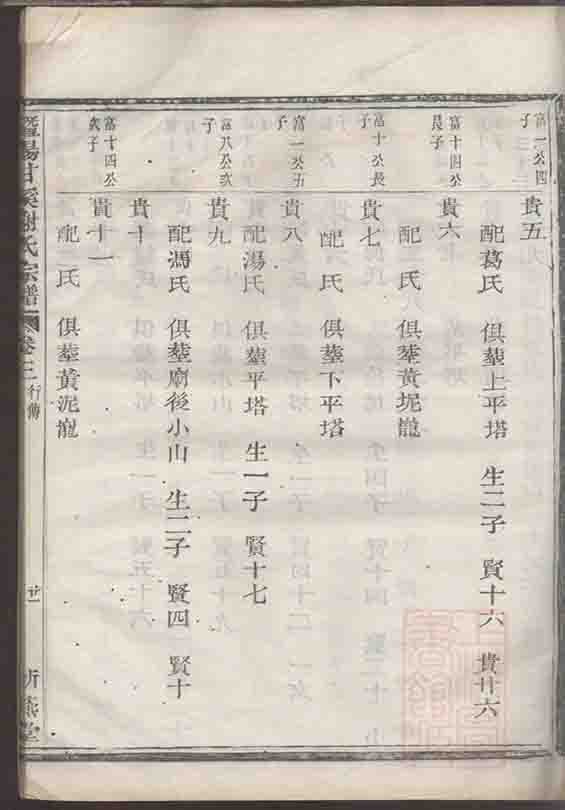 富一公四子
貴五
配葛氏 俱塟上平塔 生二子 賢十六 貴廿六
富十四公長子
貴六
配 氏 俱塟黃坭巃
富十公長子
貴七
配 氏 俱塟下平塔
富一公五子
貴八
配湯氏 俱塟平塔 生一子 賢十七
富八公次子
貴九
貴十
配馮氏 俱塟廟後小山 生二子 賢四 賢十
富十四公次子
貴十一
配 氏 俱塟黃泥巃
暨陽甘溪謝氏宗譜 卷三 行傳 廿一